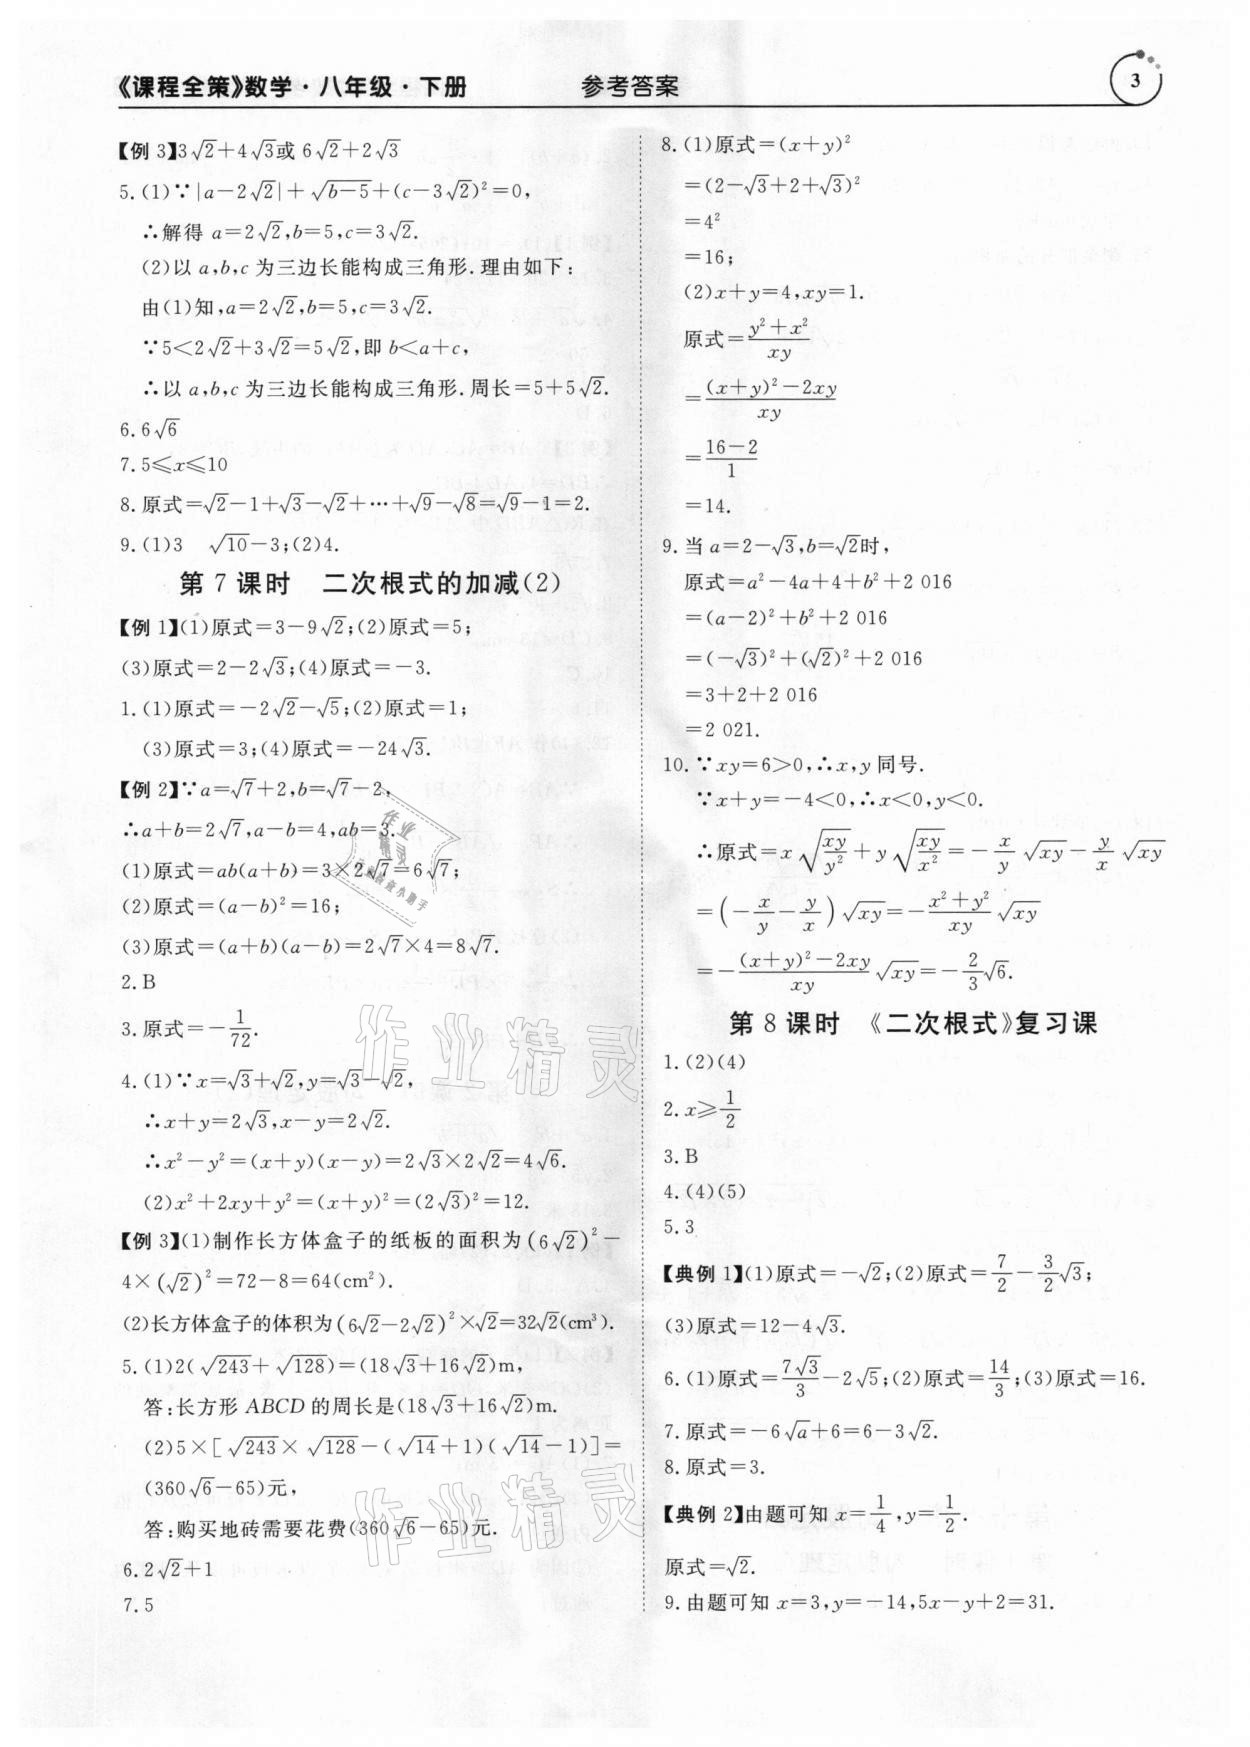 《课程全策》数学·八年级·下册 参考答案 3
【例 3】3√2+4√3或 6√2+2√3
5.(1)∵|a-2√2|+√(b-5)+(c-3√2)²=0,
∴解得 a=2√2,b=5,c=3√2.
(2)以 a,b,c 为三边长能构成三角形.理由如下:
由(1)知,a=2√2,b=5,c=3√2.
∵5<2√2+3√2=5√2,即 b<a+c,
∴以 a,b,c 为三边长能构成三角形.周长=5+5√2.
6.6√6
7.5⩽x⩽10
8.原式=√2-1+√3-√2+…+√9-√8=√9-1=2.
9.(1)3 √10-3;(2)4.
第 7 课时 二次根式的加减(2)
【例 1】(1)原式=3-9√2;(2)原式=5;
(3)原式=2-2√3;(4)原式=-3.
1.(1)原式=-2√2-√5;(2)原式=1;
(3)原式=3;(4)原式=-24√3.
【例 2】∵a=√7+2,b=√7-2,
∴a+b=2√7,a-b=4,ab=3.
(1)原式=ab(a+b)=3×2√7=6√7;
(2)原式=(a-b)²=16;
(3)原式=(a+b)(a-b)=2√7×4=8√7.
2.B
3.原式=-1/72.
4.(1)∵x=√3+√2,y=√3-√2,
∴x+y=2√3,x-y=2√2.
∴x²-y²=(x+y)(x-y)=2√3×2√2=4√6.
(2)x²+2xy+y²=(x+y)²=(2√3)²=12.
【例 3】(1)制作长方体盒子的纸板的面积为(6√2)²-
4×(√2)²=72-8=64(cm²).
(2)长方体盒子的体积为(6√2-2√2)²×√2=32√2(cm³).
5.(1)2(√243+√128)=(18√3+16√2)m,
答:长方形 ABCD 的周长是(18√3+16√2)m.
(2)5×[√243×√128-(√14+1)(√14-1)]=
(360√6-65)元,
答:购买地砖需要花费(360√6-65)元.
6.2√2+1
7.5
8.(1)原式=(x+y)²
=(2-√3+2+√3)²
=4²
=16;
(2)x+y=4,xy=1.
原式=(y²+x²)/xy
=((x+y)²-2xy)/xy
=(16-2)/1
=14.
9.当 a=2-√3,b=√2时,
原式=a²-4a+4+b²+2 016
=(a-2)²+b²+2 016
=(-√3)²+(√2)²+2 016
=3+2+2 016
=2 021.
10.∵xy=6>0,∴x,y 同号.
∵x+y=-4<0,∴x<0,y<0.
∴原式=x√(xy/y²)+y√(xy/x²)=-x/y√xy-y/x√xy
=(-x/y-y/x)√xy=-(x²+y²)/xy√xy
=-((x+y)²-2xy)/xy√xy=-2/3√6.
第 8 课时 《二次根式》复习课
1.(2)(4)
2.x⩾1/2
3.B
4.(4)(5)
5.3
【典例 1】(1)原式=-√2;(2)原式=7/2-3/2√3;
(3)原式=12-4√3.
6.(1)原式=7√3/3-2√5;(2)原式=14/3;(3)原式=16.
7.原式=-6√a+6=6-3√2.
8.原式=3.
【典例 2】由题可知 x=1/4,y=1/2.
原式=√2.
9.由题可知 x=3,y=-14,5x-y+2=31.
作业精灵
作业精灵
作业
精灵